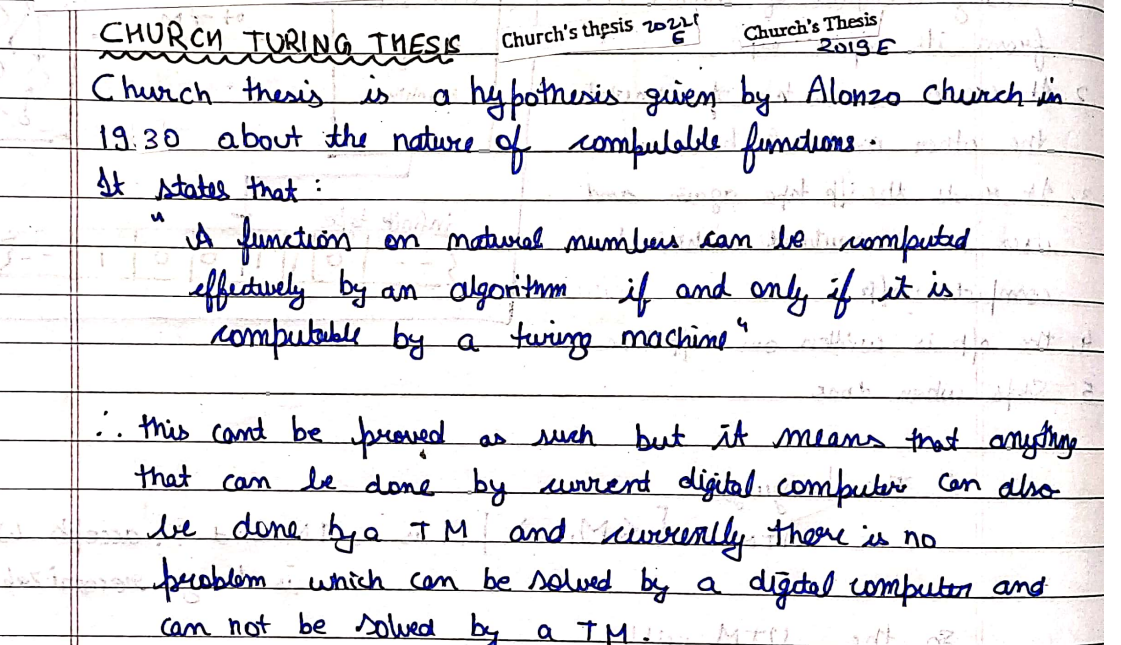 CHURCH TURING THESIS Church's thesis 2022 E Church's Thesis 2019 E
Church thesis is a hypothesis given by Alonzo church in
1930 about the nature of computable functions.
It states that :
" A function on natural numbers can be computed
effectively by an algorithm if and only if it is
computable by a turing machine "
∴ this cant be proved as such but it means that anything
that can be done by current digital computer can also
be done by a TM and currently there is no
problem which can be solved by a digital computer and
can not be solved by a TM.